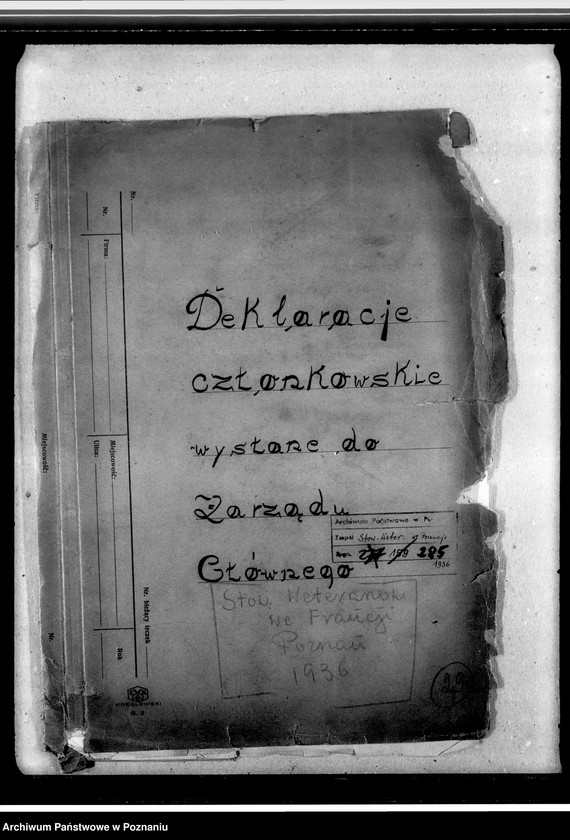 Deklaracje
członkowskie
wysłane do
Zarządu
Głównego
Archiwum Państwowe w Po
Zespół Stow. Weter. we Francji
285
1936
Stow. Weteranów
we Francji
Poznań
1936
29
Nr.
Nr.
Firma:
Miejscowość:
Ulica:
Miejscowość:
Nr. bieżący teczek
Rok
Nr.
KRĘGLEWSKI
Archiwum Państwowe w Poznaniu